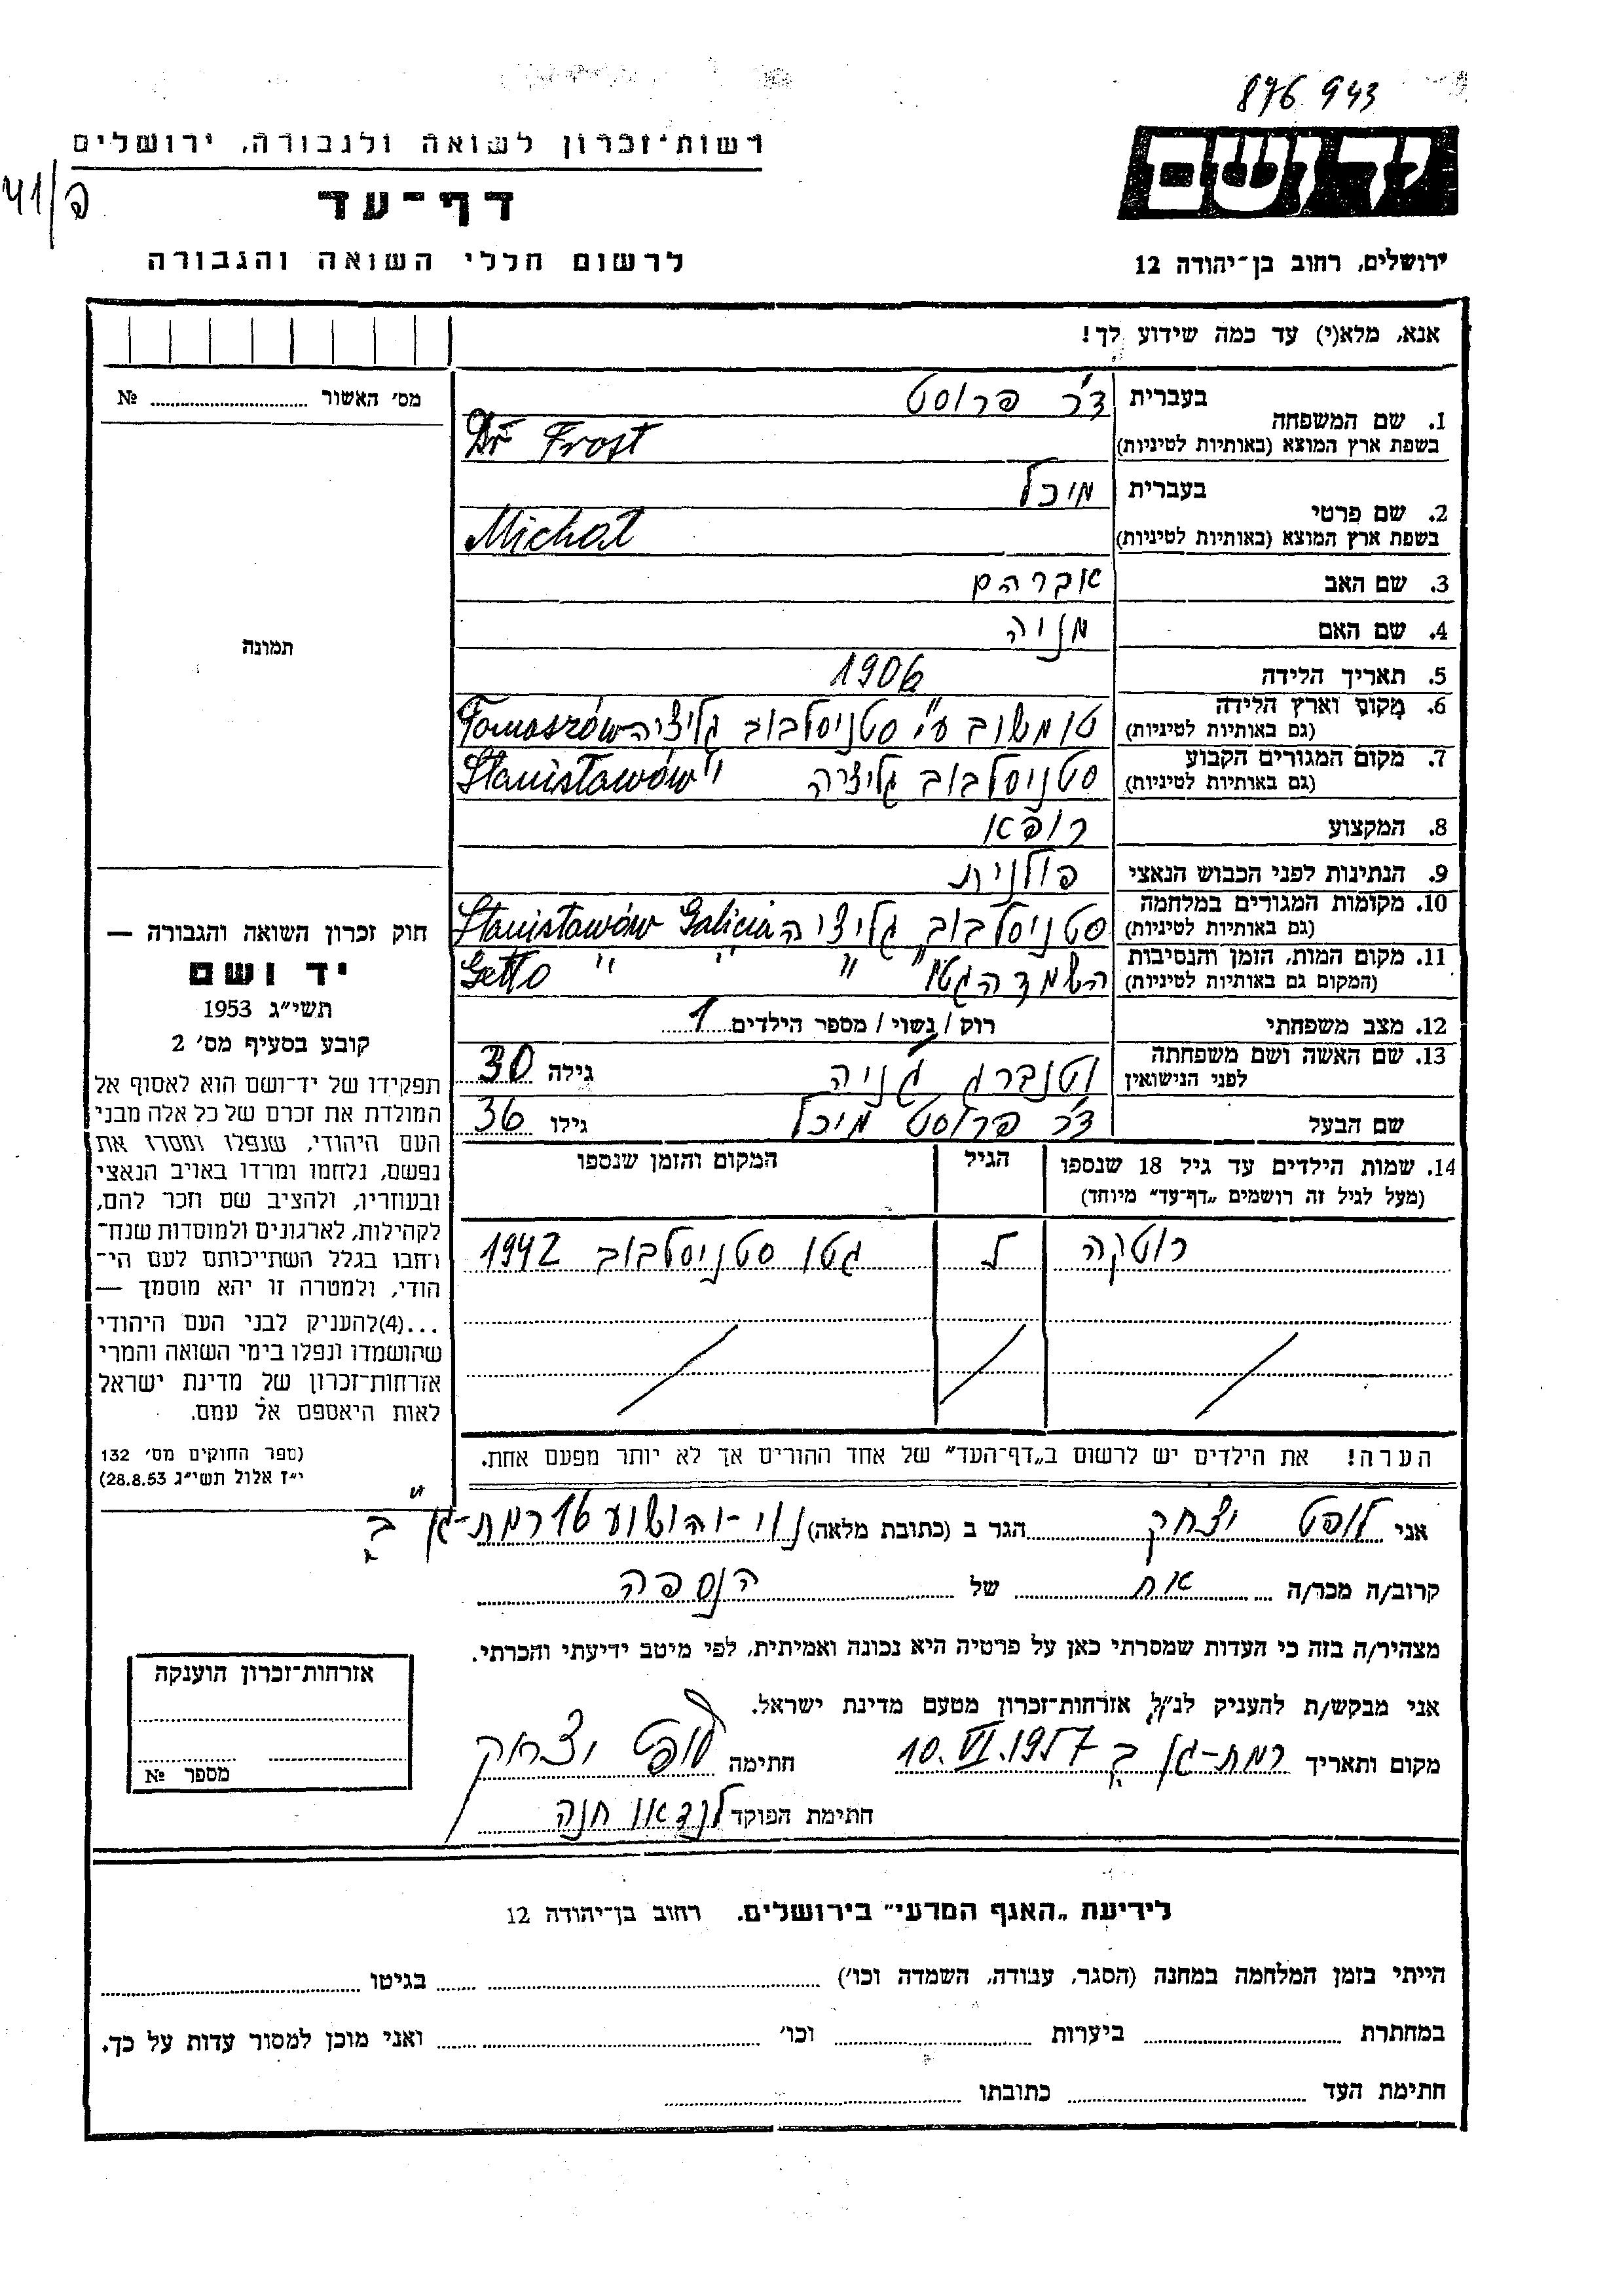 876 943
יד ושם
רשות-זכרון לשואה ולגבורה, ירושלים
41/פ
דף-עד
ירושלים, רחוב בן-יהודה 12
לרשום חללי השואה והגבורה
אנא, מלא(י) עד כמה שידוע לך!
1. שם המשפחה
בעברית ד"ר פרוסט
בשפת ארץ המוצא (באותיות לטיניות) Dr Frost
2. שם פרטי
בעברית מיכל
בשפת ארץ המוצא (באותיות לטיניות) Michał
3. שם האב אברהם
4. שם האם מניה
5. תאריך הלידה 1906
6. מקום וארץ הלידה
(גם באותיות לטיניות) טומשוב ע"י סטניסלבוב גליציה Tomaszów
7. מקום המגורים הקבוע
(גם באותיות לטיניות) סטניסלבוב גליציה " Stanisławów
8. המקצוע רופא
9. הנתינות לפני הכבוש הנאצי פולנית
10. מקומות המגורים במלחמה
(גם באותיות לטיניות) סטניסלבוב גליציה Stanisławów Galicia
11. מקום המות, הזמן והנסיבות
(המקום גם באותיות לטיניות) השמד הגטו " " " " Getto
12. מצב משפחתי רוק / נשוי / מספר הילדים 1
13. שם האשה ושם משפחתה
לפני הנישואין וטנברג ג'ניה גילה 30
שם הבעל ד"ר פרוסט מיכל גילו 36
14. שמות הילדים עד גיל 18 שנספו
(מעל לגיל זה רושמים „דף-עד" מיוחד)
הגיל
המקום והזמן שנספו
רוטקה
גטו סטניסלבוב 1942
הערה! את הילדים יש לרשום ב„דף-העד" של אחד ההורים אך לא יותר מפעם אחת.
מס' האשור № 
תמונה
חוק זכרון השואה והגבורה —
יד ושם
תשי"ג 1953
קובע בסעיף מס' 2
תפקידו של יד-ושם הוא לאסוף אל
המולדת את זכרם של כל אלה מבני
העם היהודי, שנפלו ומסרו את
נפשם, נלחמו ומרדו באויב הנאצי
ובעוזריו, ולהציב שם וזכר להם,
לקהילות, לארגונים ולמוסדות שנח־
רחבו בגלל השתייכותם לעם הי־
הודי, ולמטרה זו יהא מוסמך —
...(4)להעניק לבני העם היהודי
שהושמדו ונפלו בימי השואה והמרי
אזרחות-זכרון של מדינת ישראל
לאות היאספם אל עמם.
(ספר החוקים מס' 132
י"ז אלול תשי"ג 28.8.53)
אני לופט יצחק הגר ב (כתובת מלאה) נוי-יהושוע 16 רמת-גן ב
קרוב/ה מכר/ה אח של הנספה
מצהיר/ה בזה כי העדות שמסרתי כאן על פרטיה היא נכונה ואמיתית, לפי מיטב ידיעתי והכרתי.
אני מבקש/ת להעניק לנ"ל אזרחות-זכרון מטעם מדינת ישראל.
מקום ותאריך רמת-גן ב 10.VI.1957 חתימה לופט יצחק
חתימת הפוקד לנדאו חנה
אזרחות-זכרון הוענקה
מספר №
לידיעת „האגף המדעי" בירושלים. רחוב בן-יהודה 12
הייתי בזמן המלחמה במחנה (הסגר, עבודה, השמדה וכו') בגיטו
במחתרת ביערות וכו' ואני מוכן למסור עדות על כך.
חתימת העד כתובתו